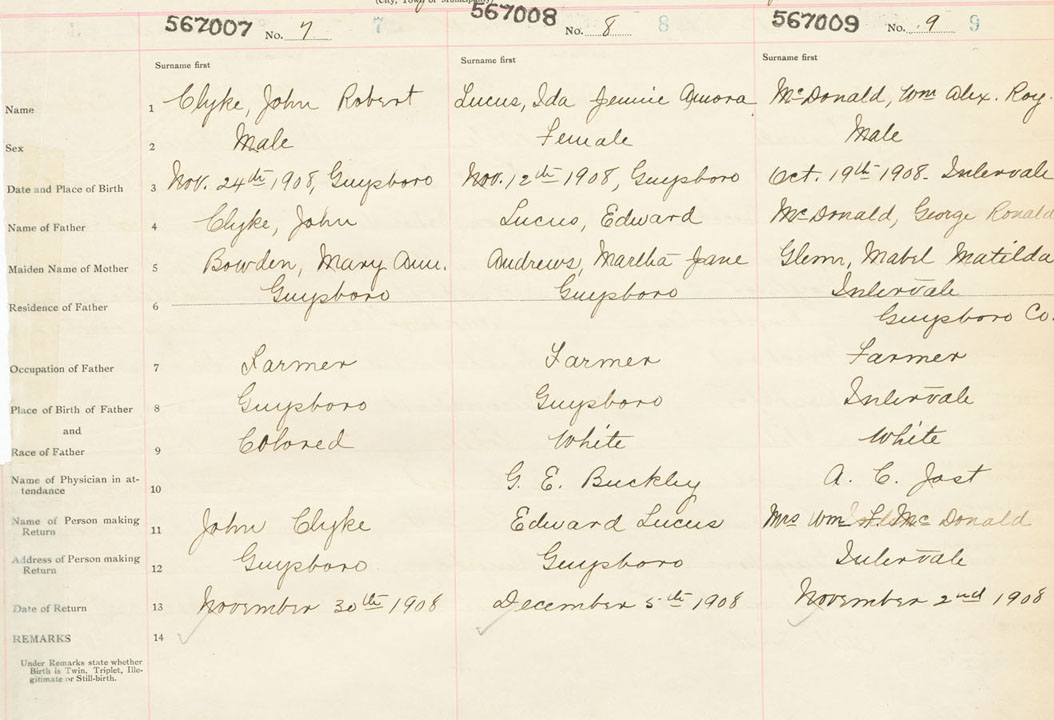 (City, Town or Municipality)
567007 No. 7 7
567008 No. 8 8
567009 No. 9 9
Surname first Surname first Surname first
Name 1 Clyke, John Robert Lucus, Ida Jennie Amora McDonald, Wm Alex. Roy.
Sex 2 Male Female Male
Date and Place of Birth 3 Nov. 24th 1908, Guysboro Nov. 12th 1908, Guysboro Oct. 19th 1908. Intervale
Name of Father 4 Clyke, John Lucus, Edward McDonald, George Ronald
Maiden Name of Mother 5 Bowden, Mary Ann. Andrews, Martha Jane Glenn, Mabel Matilda
Residence of Father 6 Guysboro Guysboro Intervale
Guysboro Co.
Occupation of Father 7 Farmer Farmer Farmer
Place of Birth of Father 8 Guysboro Guysboro Intervale
and
Race of Father 9 Colored White White
Name of Physician in at-
tendance 10 G. E. Buckley A. C. Jost
Name of Person making
Return 11 John Clyke Edward Lucus Mrs Wm McDonald
Address of Person making
Return 12 Guysboro. Guysboro Intervale
Date of Return 13 November 30th 1908 December 5th 1908 November 2nd 1908
REMARKS 14
Under Remarks state whether
Birth is Twin, Triplet, Ille-
gitimate or Still-birth.